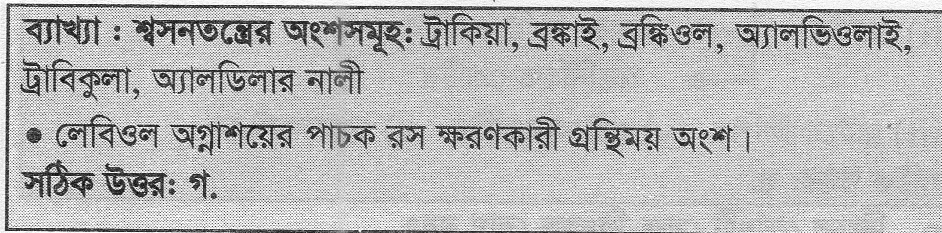 ব্যাখ্যা : শ্বসনতন্ত্রের অংশসমূহ: ট্রাকিয়া, ব্রঙ্কাই, ব্রঙ্কিওল, অ্যালভিওলাই,
ট্রাবিকুলা, অ্যালভিলার নালী
● লেবিওল অগ্নাশয়ের পাচক রস ক্ষরণকারী গ্রন্থিময় অংশ।
সঠিক উত্তর: গ.